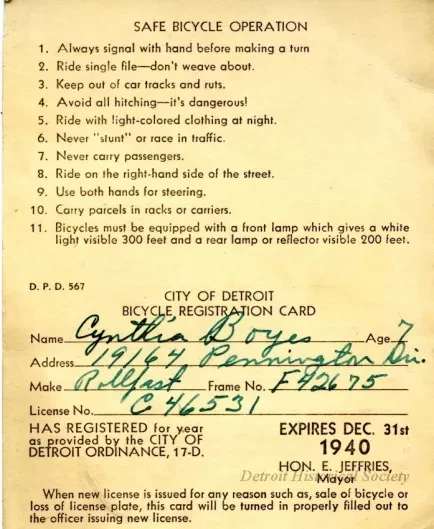 SAFE BICYCLE OPERATION
1. Always signal with hand before making a turn
2. Ride single file—don't weave about.
3. Keep out of car tracks and ruts.
4. Avoid all hitching—it's dangerous!
5. Ride with light-colored clothing at night.
6. Never "stunt" or race in traffic.
7. Never carry passengers.
8. Ride on the right-hand side of the street.
9. Use both hands for steering.
10. Carry parcels in racks or carriers.
11. Bicycles must be equipped with a front lamp which gives a white
light visible 300 feet and a rear lamp or reflector visible 200 feet.
D. P. D. 567
CITY OF DETROIT
BICYCLE REGISTRATION CARD
Name Cynthia Boyes Age 7
Address 19164 Pennington Dr.
Make Rollfast Frame No. F42675
License No. C 46531
HAS REGISTERED for year
as provided by the CITY OF
DETROIT ORDINANCE, 17-D.
EXPIRES DEC. 31st
1940
HON. E. JEFFRIES,
Mayor
Detroit Historical Society
When new license is issued for any reason such as, sale of bicycle or
loss of license plate, this card will be turned in properly filled out to
the officer issuing new license.